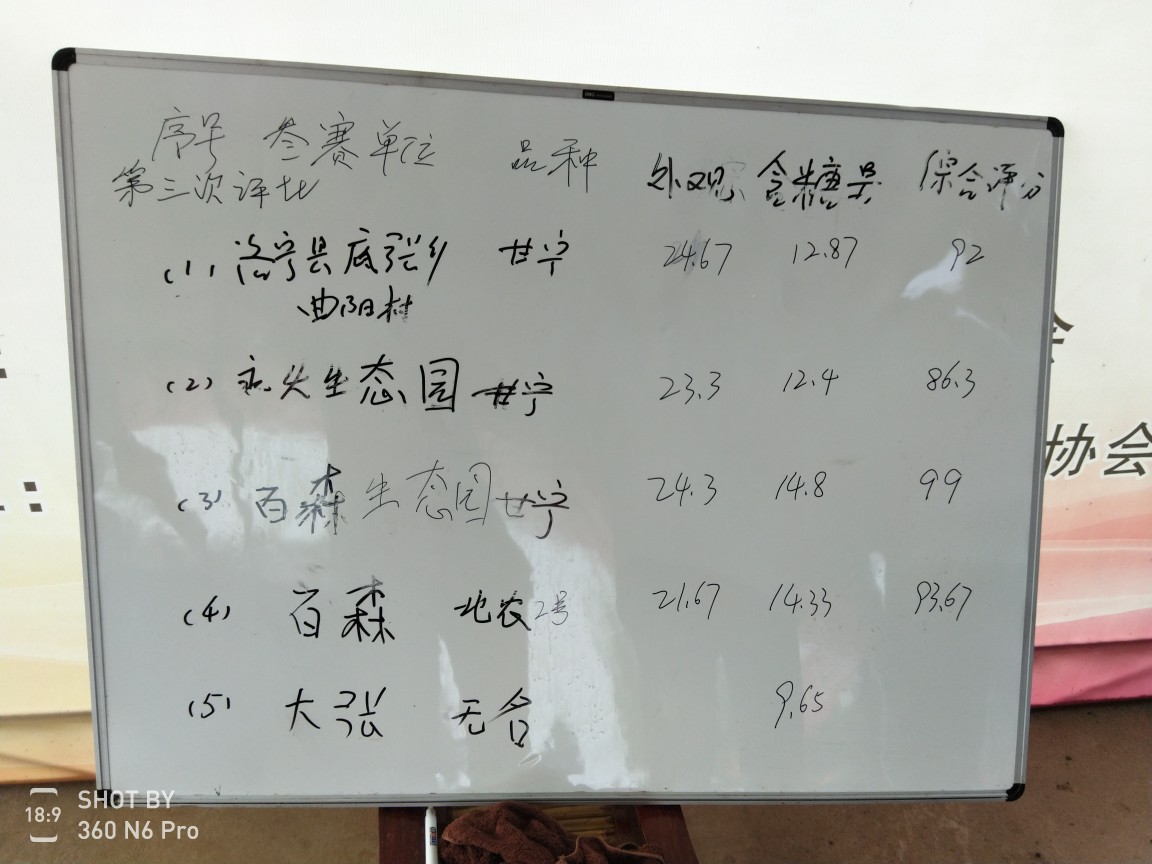 序号 参赛单位 品种 外观 含糖量 综合评分
第三次评比
(1) 洛宁县底张乡 甘宁 24.67 12.87 92
曲阳村
(2) 生态园 甘宁 23.3 12.4 86.3
(3) 百森生态园 甘宁 24.3 14.8 99
(4) 百森 北农2号 21.67 14.33 93.67
(5) 大张 无台 9.65
协会
SHOT BY
18:9
360 N6 Pro